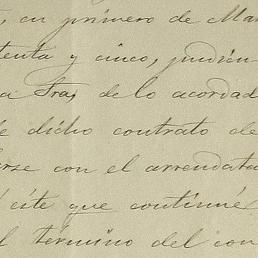 en primero de Mar
tenta y cinco, pudien
a Sra, de lo acordad
de dicho contrato de
erse con el arrendata
este que continué
l término del con